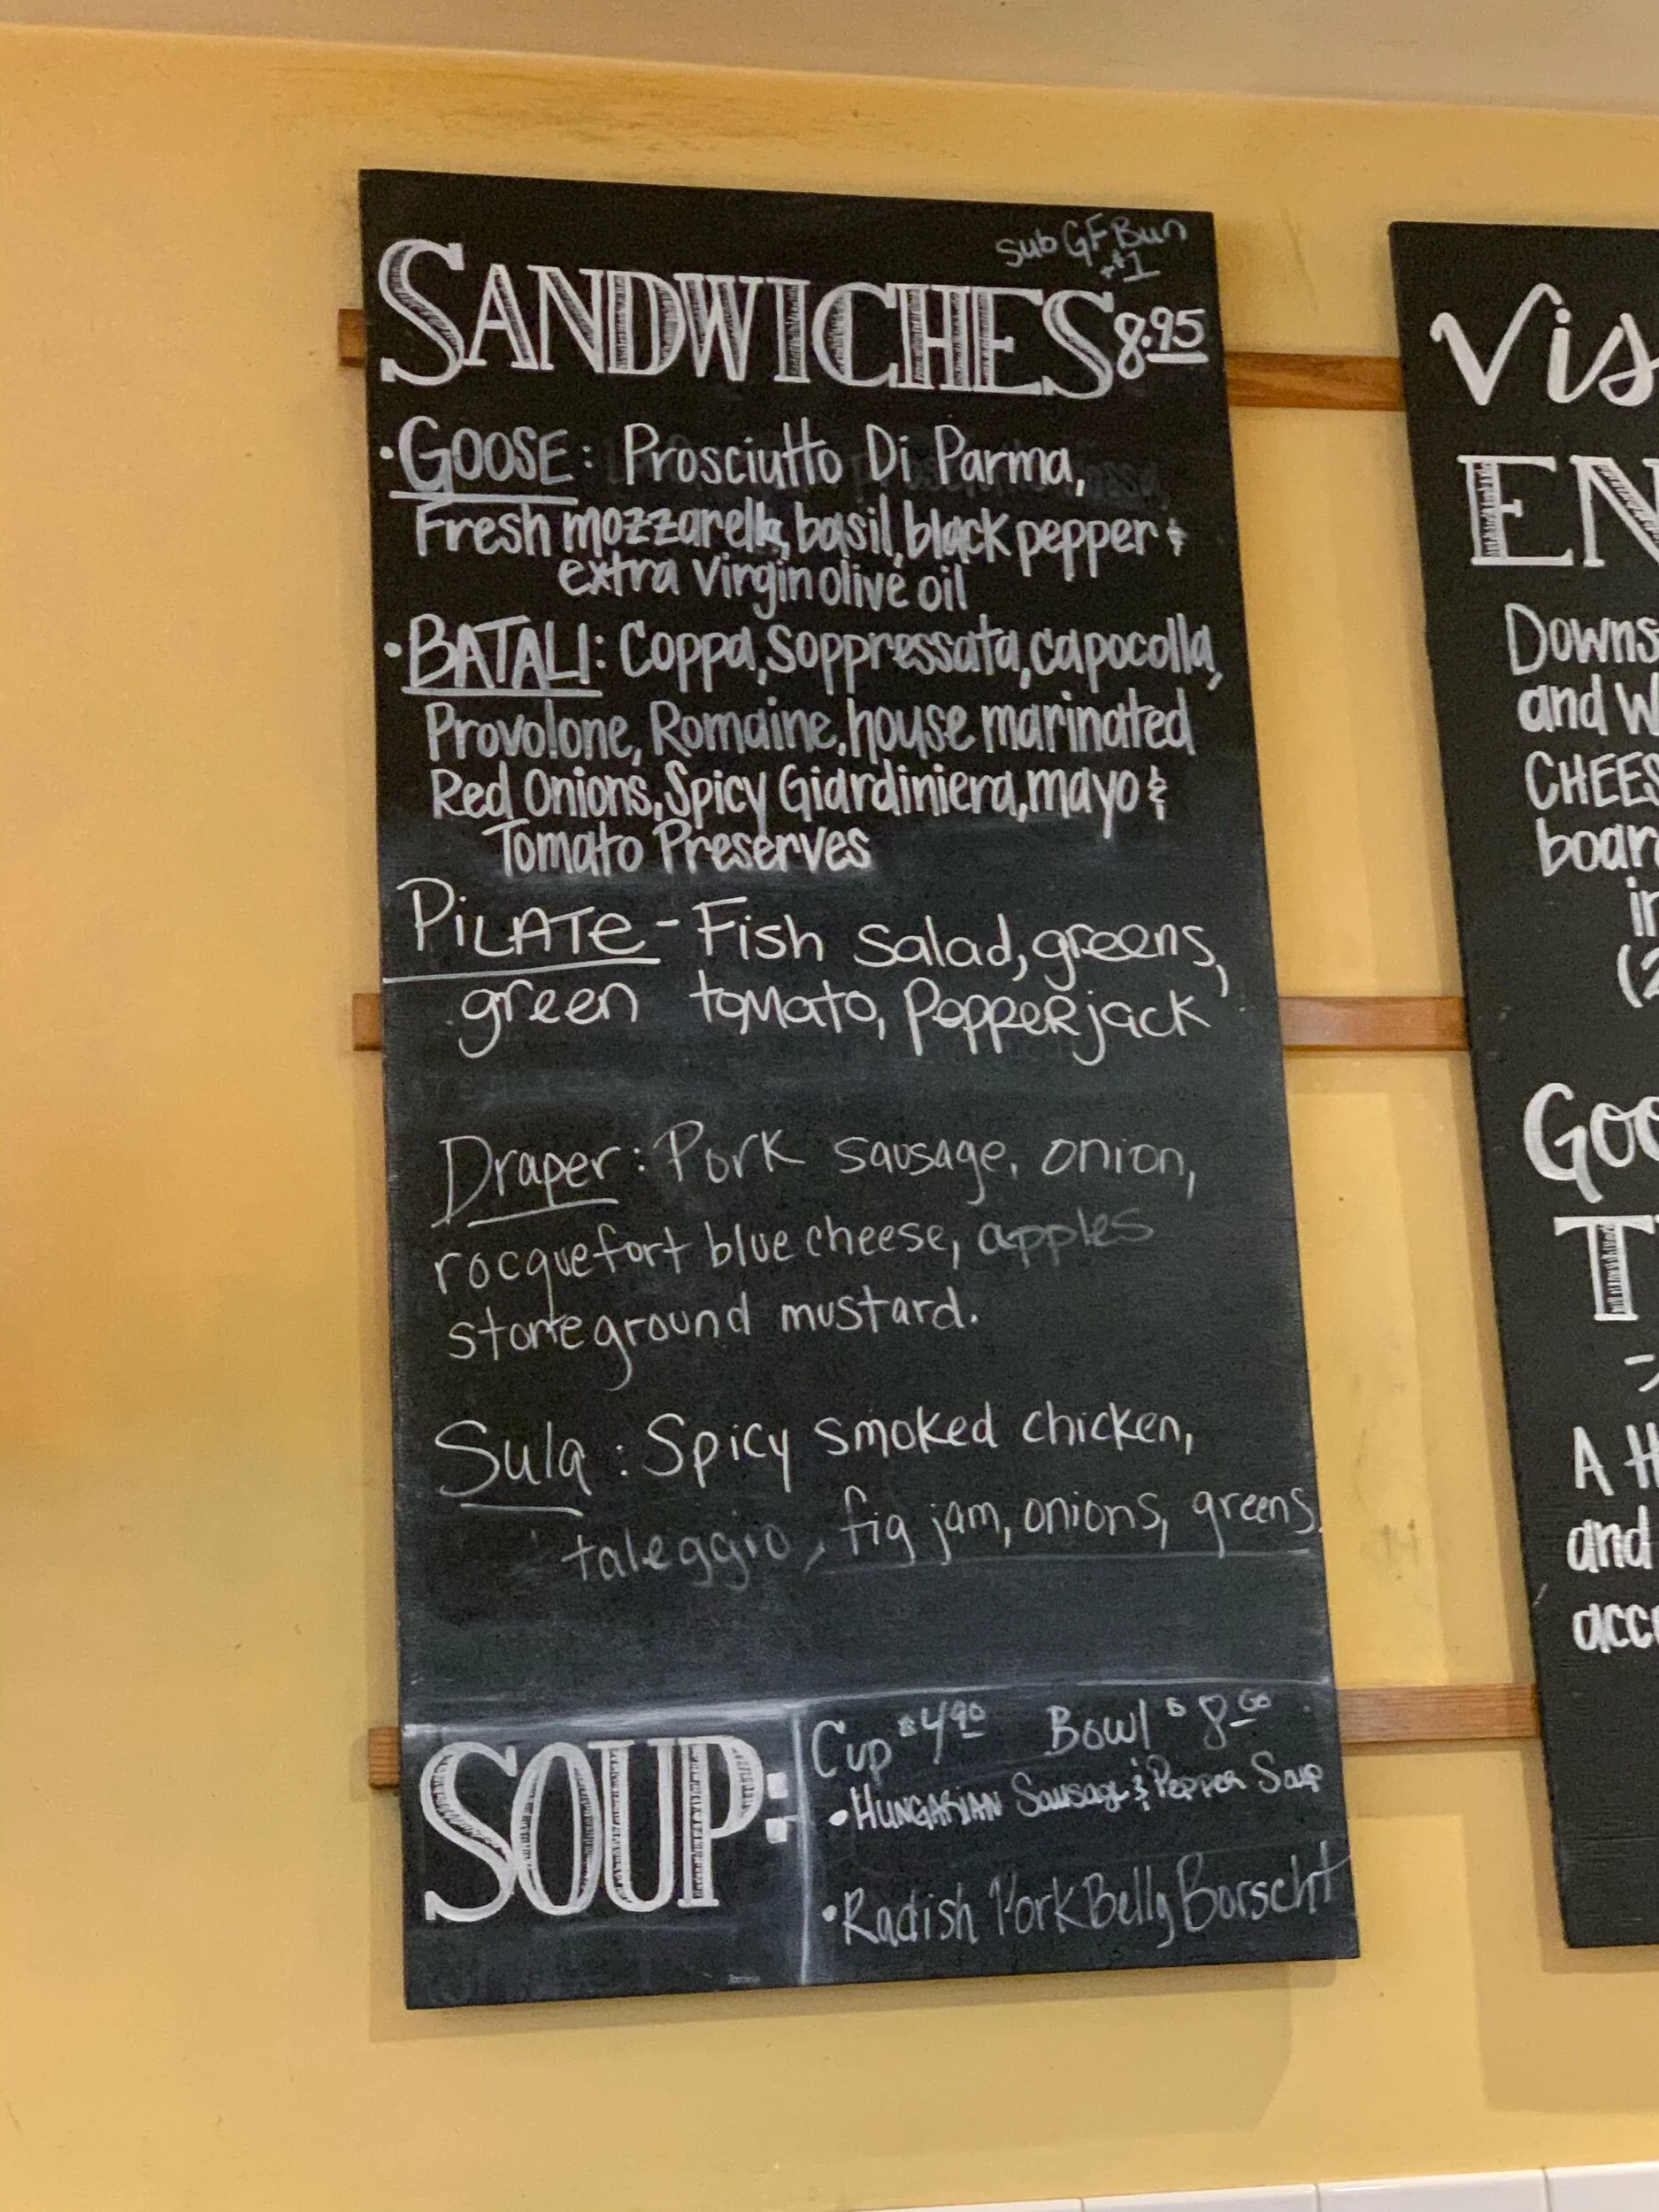 Sub GF Bun
+$1
SANDWICHES 8.95
• GOOSE: Prosciutto Di Parma,
Fresh mozzarella, basil, black pepper &
extra Virgin olive oil
• BATALI: Coppa, Soppressata, capocolla,
Provolone, Romaine, house marinated
Red Onions, Spicy Giardiniera, mayo &
Tomato Preserves
PiLATe - Fish Salad, greens,
green tomato, PepperjacK
Draper: Pork sausage, onion,
rocquefort blue cheese, apples
stoneground mustard.
Sula: Spicy smoked chicken,
taleggio, fig jam, onions, greens.
SOUP:
Cup $4.90 Bowl $8.00
• HUNGARIAN Sausage & Pepper Soup
• Radish Pork Belly Borscht
Vis
EN
Downs
and W
CHEES
boar
in
(2
GOO
T
A H
and
acc